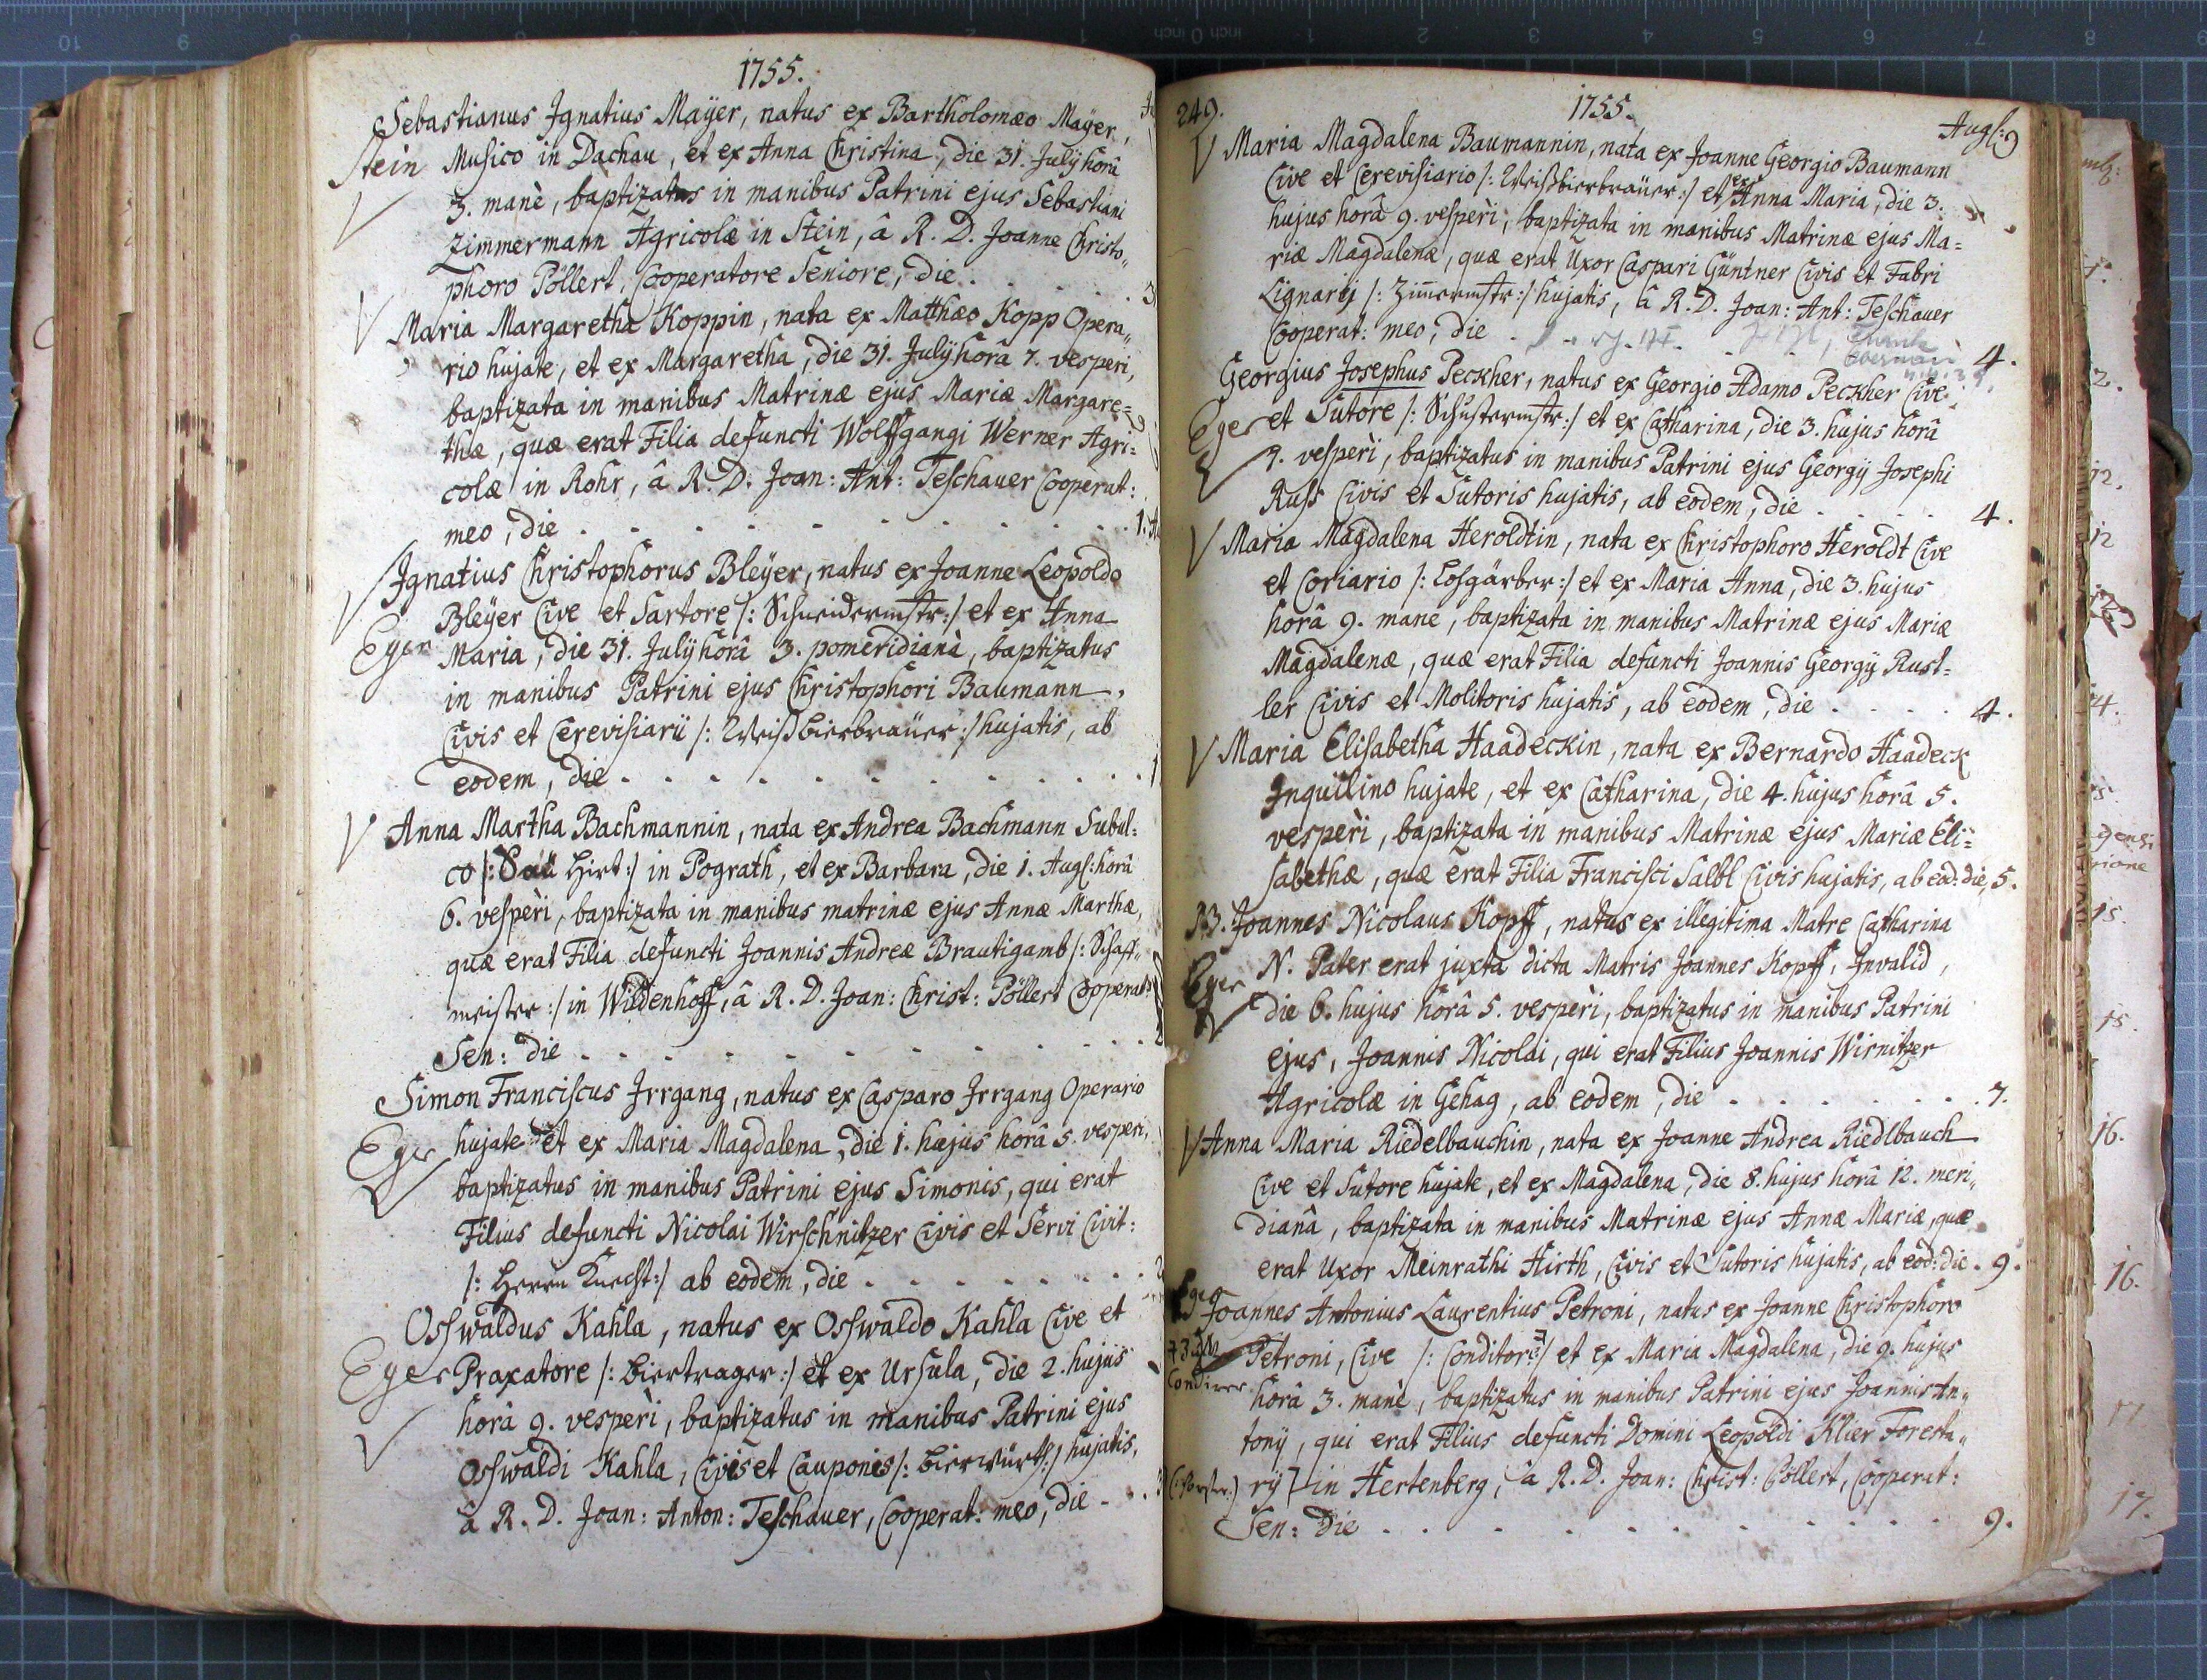 1755.
Sebastianus Ignatius Maÿer, natus ex Bartholomæo Maÿer,
Stein Musico in Dachau, et ex Anna Christina, die 31. Julÿ horâ
3. manè, baptizatus in manibus Patrini ejus Sebastiani
Zimmermann Agricolæ in Stein, â R. D. Joanne Christo„
phoro Pöllert, Cooperatore Seniore, die . . . . . 3
Maria Margaretha Koppin, nata ex Matthæo Kopp Opera„
rio hujate, et ex Margaretha, die 31. Julÿ horâ 7. vesperi,
baptizata in manibus Matrinæ ejus Mariæ Margare=
thæ, quæ erat Filia defuncti Wolffgangi Werner Agri=
colæ in Rohr, â R. D. Joan: Ant: Teschauer Cooperat:
meo, die . . . . . . . . . . 1.
Ignatius Christophorus Bleÿer, natus ex Joanne Leopoldo
Bleÿer Cive et Sartore /: Schneidermstr:/ et ex Anna
Eger Maria, die 31. Julÿ horâ 3. pomeridianà, baptizatus
in manibus Patrini ejus Christophori Baumann,
Civis et Cerevisiarii /: Weißbierbräuer:/ hujatis, ab
eodem, die . . . . . . . . . . 1
Anna Martha Bachmannin, nata ex Andrea Bachmann Subul=
co /: Sau Hirt:/ in Pograth, et ex Barbara, die 1. Augs: horâ
6. vesperì, baptizata in manibus matrinæ ejus Annæ Marthæ,
quæ erat Filia defuncti Joannis Andreæ Brautigamb /: Schaff„
meister:/ in Wildenhoff, â R. D. Joan: Christ: Pöllert Cooperat:
Sen: die . . . . . . . . . .
Simon Franciscus Irrgang, natus ex Casparo Irrgang Operario
Eger hujate et ex Maria Magdalena, die 1. hujus horâ 5. vesperi,
baptizatus in manibus Patrini ejus Simonis, qui erat
Filius defuncti Nicolai Wirschnitzer Civis et Servi Civit:
/: Herrn Knecht:/ ab eodem, die . . . . . . . 2
Osswaldus Kahla, natus ex Osswaldo Kahla Cive et
Eger Praxatore /: Biertrager:/ et ex Ursula, die 2. hujus
horâ 9. vesperì, baptizatus in manibus Patrini ejus
Osswaldi Kahla, Civis et Cauponis /: Bierwürth:/ hujatis,
â R. D. Joan: Anton: Teschauer, Cooperat: meo, die . . 3
249. 1755. Augs:
Maria Magdalena Baumannin, nata ex Joanne Georgio Baumann
Cive et Cerevisiario /: Weißbierbräuer:/ et ex Anna Maria, die 3.
hujus horâ 9. vesperì, baptizata in manibus Matrinæ ejus Ma=
riæ Magdalenæ, quæ erat Uxor Caspari Güntner Civis et Fabri
Lignarij /: Zimermstr:/ hujatis, â R. D. Joan: Ant: Teschauer
Cooperat: meo, die . . . . 4.
Georgius Josephus Peckher, natus ex Georgio Adamo Peckher Cive
Eger et Sutore /: Schustermstr:/ et ex Catharina, die 3. hujus horâ
9. vesperì, baptizatus in manibus Patrini ejus Georgÿ Josephi
Russ Civis et Sutoris hujatis, ab eodem, die . . . . 4.
Maria Magdalena Heroldtin, nata ex Christophoro Heroldt Cive
et Coriario /: Lohgärber:/ et ex Maria Anna, die 3. hujus
horâ 9. mane, baptizata in manibus Matrinæ ejus Mariæ
Magdalenæ, quæ erat Filia defuncti Joannis Georgÿ Rust=
ler Civis et Molitoris hujatis, ab eodem, die . . . . 4.
Maria Elisabetha Haadeckin, nata ex Bernardo Haadeck
Inquilino hujate, et ex Catharina, die 4. hujus horâ 5.
vesperì, baptizata in manibus Matrinæ ejus Mariæ Eli=
sabethæ, quæ erat Filia Francisci Salbl Civis hujatis, ab eod: die, 5.
NB. Joannes Nicolaus Kopff, natus ex illegitima Matre Catharina
Eger N. Pater erat juxta dicta Matris Joannes Kopff, Invalid,
die 6. hujus horâ 5. vesperì, baptizatus in manibus Patrini
ejus, Joannis Nicolai, qui erat Filius Joannis Wirnitzer
Agricolæ in Gehag, ab eodem, die . . . . . . . 7.
Anna Maria Riedelbauchin, nata ex Joanne Andrea Riedlbauch
Cive et Sutore hujate, et ex Magdalena, die 8. hujus horâ 12. meri„
dianâ, baptizata in manibus Matrinæ ejus Annæ Mariæ, quæ
erat Uxor Meinrathi Hirth, Civis et Sutoris hujatis, ab eod: die . 9.
Eger Joannes Antonius Laurentius Petroni, natus ex Joanne Christophoro
Petroni, Cive /: Conditore:/ et ex Maria Magdalena, die 9. hujus
horâ 3. manè, baptizatus in manibus Patrini ejus Joannis An„
tonÿ, qui erat Filius defuncti Domini Leopoldi Klier Foresta„
(:Forster:) rÿ in Hertenberg, â R. D. Joan: Christ: Pöllert, Cooperat:
Sen: die . . . . . . . . . . 9.